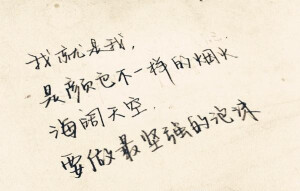 我就是我，
是颜色不一样的烟火
海阔天空，
要做最坚强的泡沫